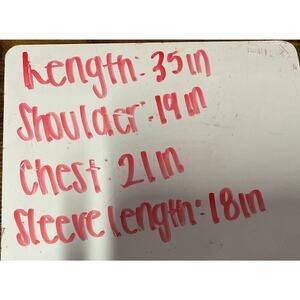 Length: 35in
Shoulder: 19in
Chest: 21in
Sleeve length: 18in